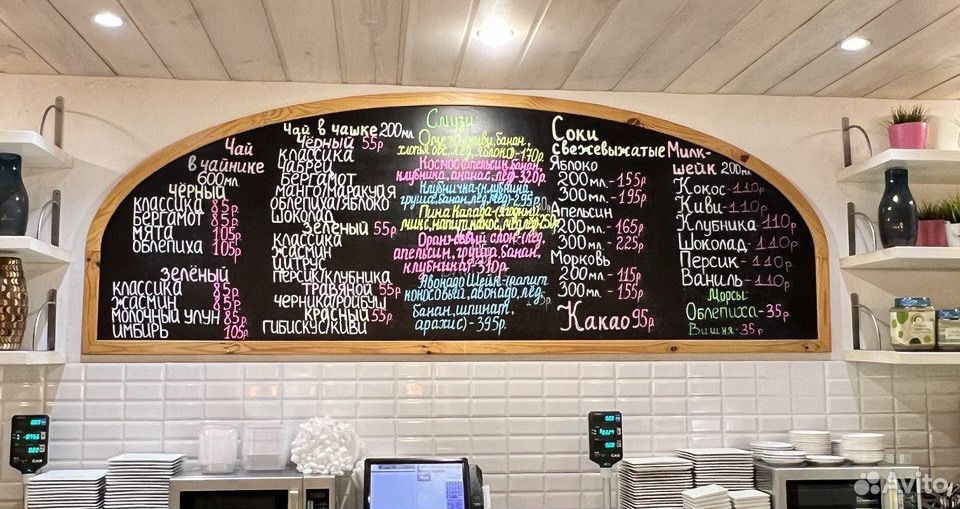 Чай
в чайнике
600мл
Чёрный
классика 85р
бергамот 85р
мята 105р
облепиха 105р
Зелёный
классика 85р
жасмин 85р
молочный улун 85р
имбирь 105р
Чай в чашке 200мл
Чёрный 55р
классика
чабрец
бергамот
манго/маракуйя
облепиха/яблоко
шоколад
Зеленый 55р
классика
жасмин
цитрус
персик/клубника
Травяной 55р
черника/ройбуш
красный 55р
гибискус/киви
Смузи:
киви, банан,
хлопья ов., лёд, яблоко)-170р
Кокнос (апельсин, банан,
клубника, ананас, лёд-320р
Клубничка-(клубника,
груша, банан, лёд, мёд-295р
Пина Калада-(ягодный
микс, напит. кокос, мёд, лёд-250р
Оранжевый слон-(лёд,
апельсин, груша, банан,
клубника)-310р
Авокадо Шейк-(напит.
кокосовый, авокадо, лёд,
банан, шпинат,
арахис)-395р.
Соки
свежевыжатые
Яблоко
200 мл.-155р
300 мл.-195р
Апельсин
200 мл.-165р
300 мл.-225р
Морковь
200 мл.-115р
300 мл.-155р
Какао 95р
Милк-
шейк 200мл
Кокос-110р
Киви-110р
Клубника-110р
Шоколад-110р
Персик-110р
Ваниль-110р
Морсы:
Облепиха-35р
Вишня-35р
Avito